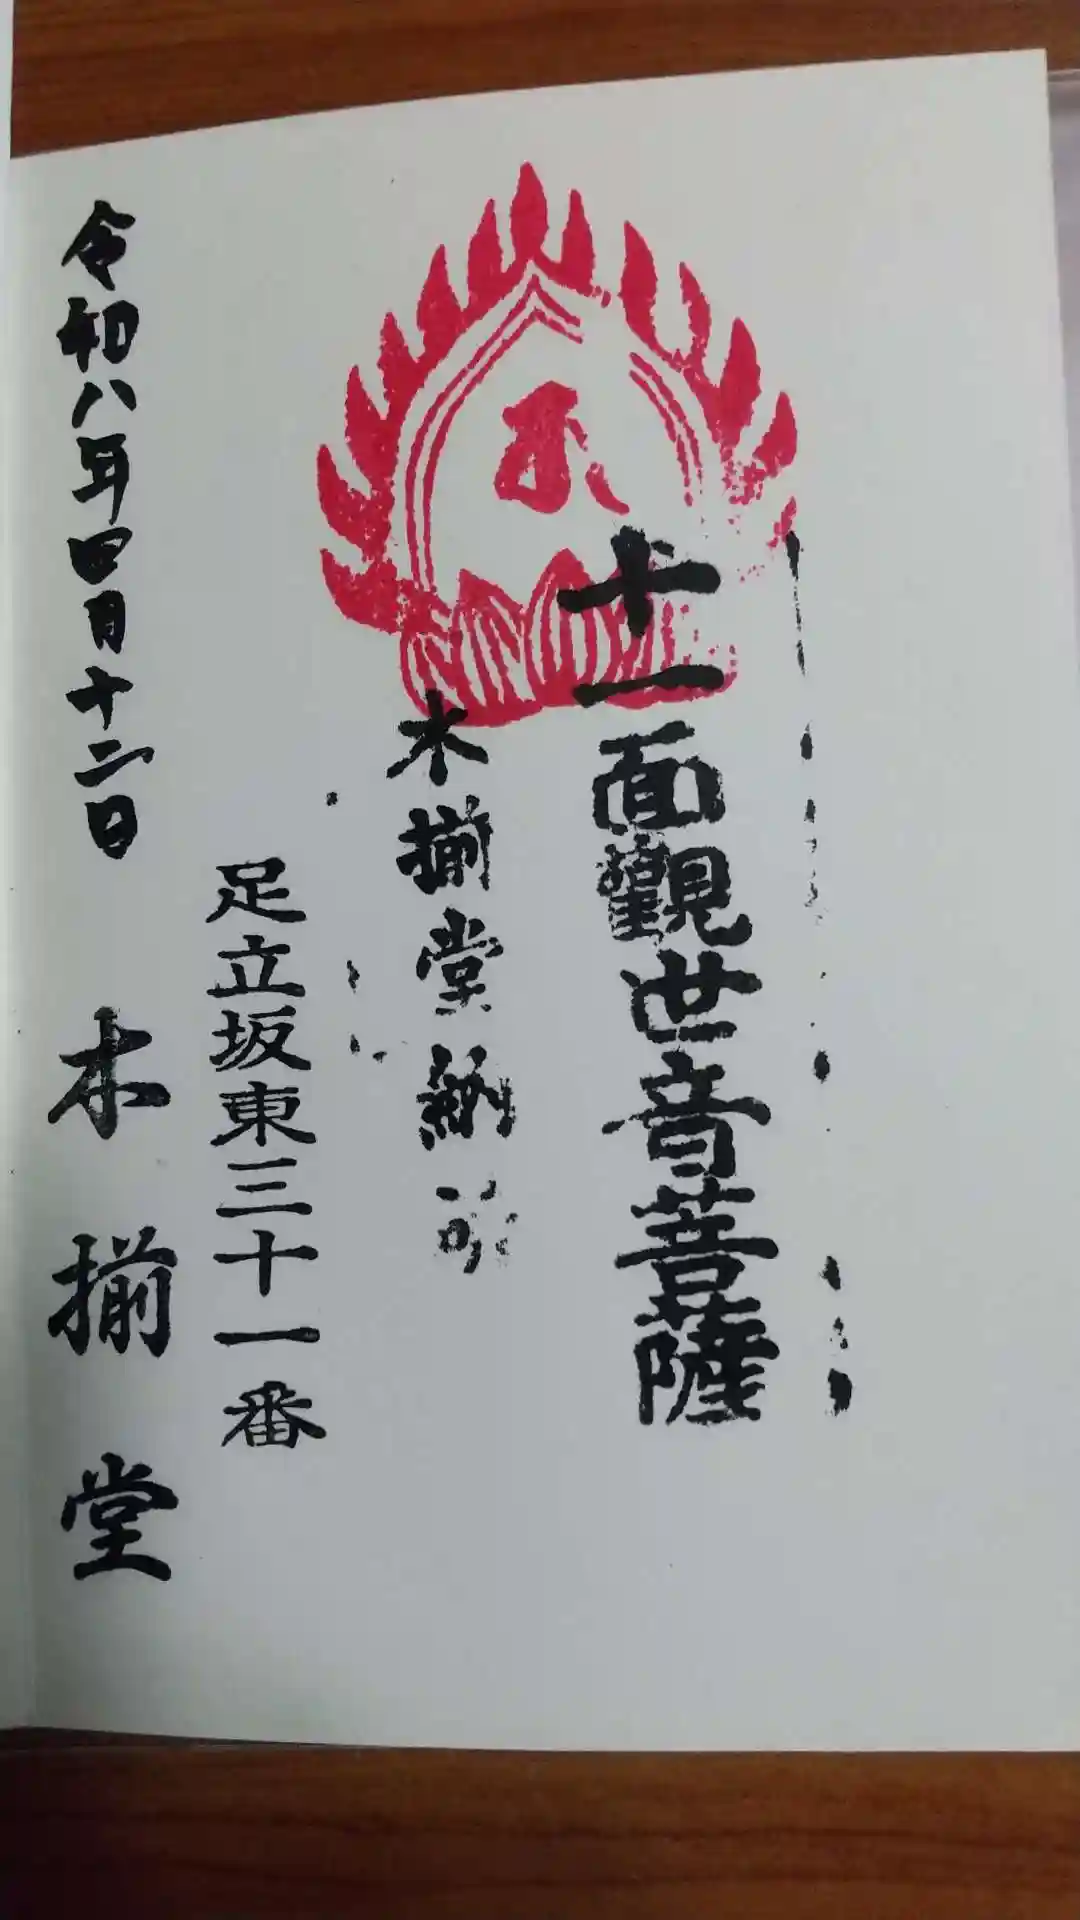 十一面觀世音菩薩
木揃堂納
足立坂東三十一番
令和八年四月十二日 木揃堂